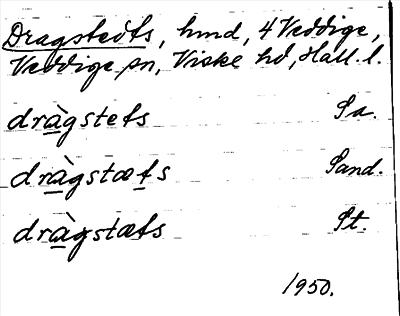 Dragstedts, hmd, 4 Veddige,
Veddige sn, Viske hd, Hall. l.
dràgstets Sa.
dràgstæts Sand.
dràgstæts St.
1950.